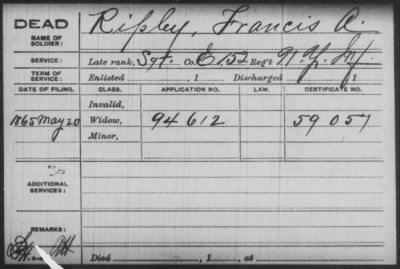 DEAD
NAME OF SOLDIER: Ripley, Francis A.
SERVICE: Late rank, Sgt. Co. E 152 Reg't N.Y. Inf.
TERM OF SERVICE: Enlisted , 1 Discharged , 1
DATE OF FILING. CLASS. APPLICATION NO. LAW. CERTIFICATE NO.
Invalid,
1865 May 20 Widow, 94 612 59 057
Minor,
ADDITIONAL SERVICES:
REMARKS:
Died , 1 , at